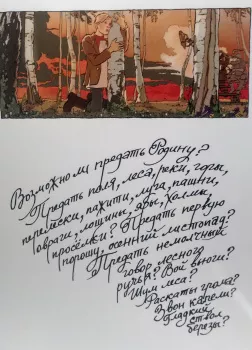 Возможно ли предать Родину?
Предать поля, леса, реки, горы,
перелески, пажити, луга, пашни,
овраги, лощины, яры, холмы,
просёлки? Предать первую
порошу, осенний листопад?
Предать немолчный
говор лесного
ручья? Вой вьюги?
Шум леса?
Раскаты грома?
Звон капели?
Гладкий
ствол
березы?